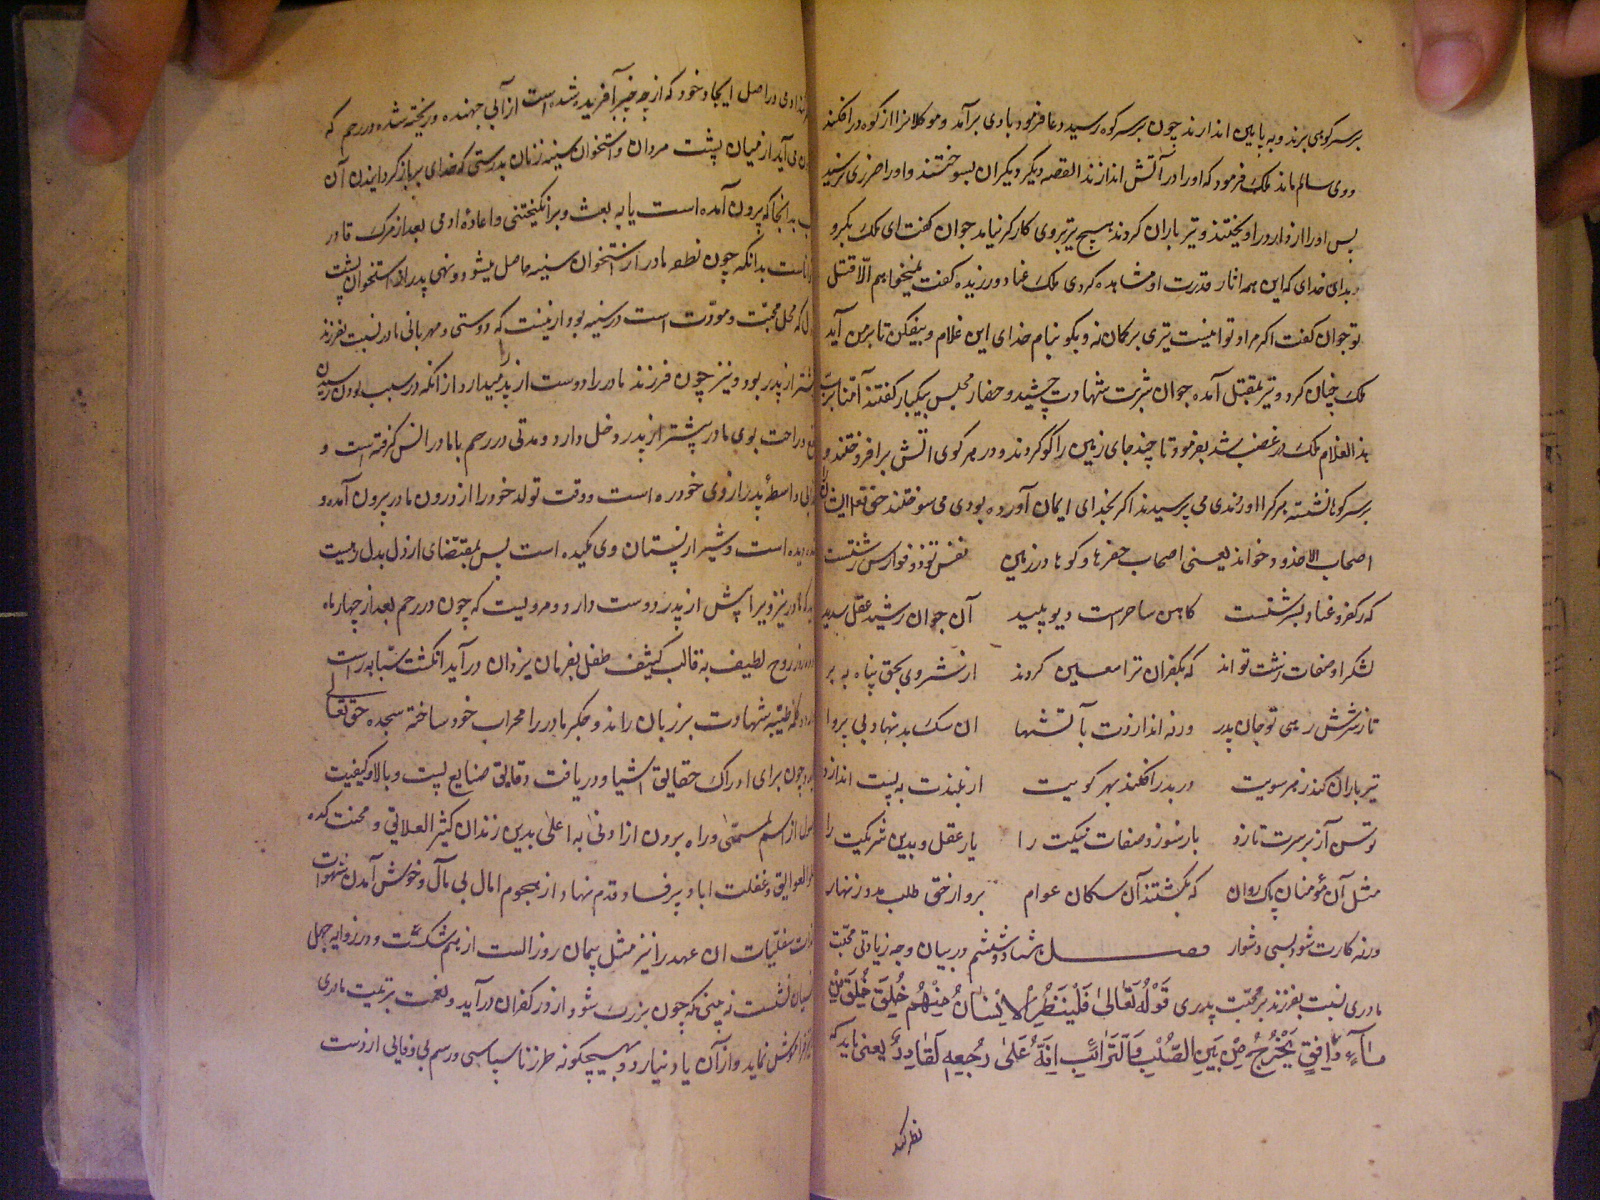 بر سر کوهی برند و به پایین اندازند چون بر سر کوه رسید دعا فرمود بادی برآمد و موکلانرا از کوه درافکند
و وی سالم ماند ملک فرمود که او را در آتش اندازند القصه دیگر دیگران بسوختند و او را ضرری نرسید
پس او را از دار درآویختند و تیر باران کردند هیچ تیر بر وی کارگر نیامد جوان گفت ای ملک بگرو
بدان خدای که این همه آثار قدرت او مشاهده کردی ملک عناد ورزیده گفت نمیخواهم الّا قتل
تو جوان گفت اگر مراد تو اینست تیری بر کمان نه و بگو بنام خدای این غلام و بیفکن تا بر من آید
ملک چنان کرد و تیر بمقتل آمده جوان شربت شهادت چشید و حضار مجلس بیکبار گفتند آمنّا بربّ
هذا الغلام ملک در غضب شد بفرمود تا چند جای زمین را گو کردند و در هر گوی آتش برافروختند و
بر سر گوها نشسته هر کرا آوردندی می پرسیدند اگر بخدای ایمان آورده بودی می سوختند حق تعالی ایشان
اصحاب الاخدود خواند یعنی اصحاب حفرها و گوها در زمین نفس تو ذو نواس زشتست
که کفر و عناد بسرشتست کاهن ساحرست دیو پلید آن جوان رشید عقل سدید
لشکر او صفات زشت تو اند که بکفران ترا معین کردند از شر وی بحق پناه به بر
تا ز شرش رهی تو جان پدر ورنه اندازدت بآتشها آن سگ بد نهاد بی پروا
تیر باران کند ز هر سویت در بدر افکند بهر کویت از بلندت به پست اندازد
توسن آز بر سرت تازد بار سوزد صفات نیکت را یار عقل و بدین شریکت را
مثل آن مؤمنان پاک روان که بکشتند آن سگان عوام برو از حق طلب مدد زنهار
ورنه کارت شود بسی دشوار فصل شصت و ششم در بیان وجه زیادتی محبّت
مادری نسبت بفرزند بر محبّت پدری قَوْلُهُ تَعَالیٰ فَلْیَنْظُرِ الاِنْسَانُ مِمَّ خُلِقَ خُلِقَ مِنْ
مَاءٍ دَافِقٍ یَخْرُجُ مِنْ بَیْنِ الصُّلْبِ وَالتَّرَائِبِ اِنَّهُ عَلیٰ رَجْعِهِ لَقَادِرٌ یعنی باید که
نظر کند
آدمی در اصل ایجاد خود که از چه چیز آفریده شده است از آبی جهنده و ریخته شده در رحم که
می آید از میان پشت مردان و استخوان سینه زنان بدرستی که خدای بر باز گردانیدن آن
بدانجا که بیرون آمده است یا به بعث و برانگیختن و اعاده آدمی بعد از مرگ قادر
است بدانکه چون نطفه مادر از استخوان سینه حاصل میشود و نهی پدر از استخوان پشت
که محل محبّت و مودّت است در سینه بود ازینست که دوستی و مهربانی مادر نسبت بفرزند
از پدر بود و نیز چون فرزند مادر را دوست از پدر میدارد از آنکه در سبب بودن رسیدن
و راحت بوی مادر بیشتر از پدر دخل دارد و مدتی در رحم با مادر انس گرفته است و
بی واسطهٔ پدر از وی خورده است و وقت تولد خود را از درون مادر بیرون آمده و
دیده است و شیر از پستان وی مکیده است پس بمقتضای از دل بدل رهیست
مادر نیز ویرا پیش از پدر دوست دارد و مرویست که چون در رحم بعد از چهار ماه
روح لطیف به قالب کثیف طفل بفرمان یزدان درآید انگشت سبّابه راست
کلمه طیبه شهادت بر زبان راند و جگر مادر را محراب خود ساخته سجده حق تعالی
چون برای ادراک حقایق اشیا و دریافت دقایق صنایع پست و بالا و کیفیت
از اسم لمسمّیٰ و راه بردن از ادنیٰ به اعلیٰ بدین زندان کثیر العلایق و محنت کده
العوایق و غفلت اباد پر فساد قدم نهاد و از هجوم امال بی مآل و خوش آمدن شهوات
سفلیات آن عهد را نیز مثل پیمان روز الست از هم شکست و در زاویه جهل
نشست نه بینی که چون بزرگ شود از در کفران درآید و نعمت تربیت مادری
فراموش نماید و از آن یاد نیارد و بهیچگونه طرز ناسپاسی و رسم بی وفایی از دست